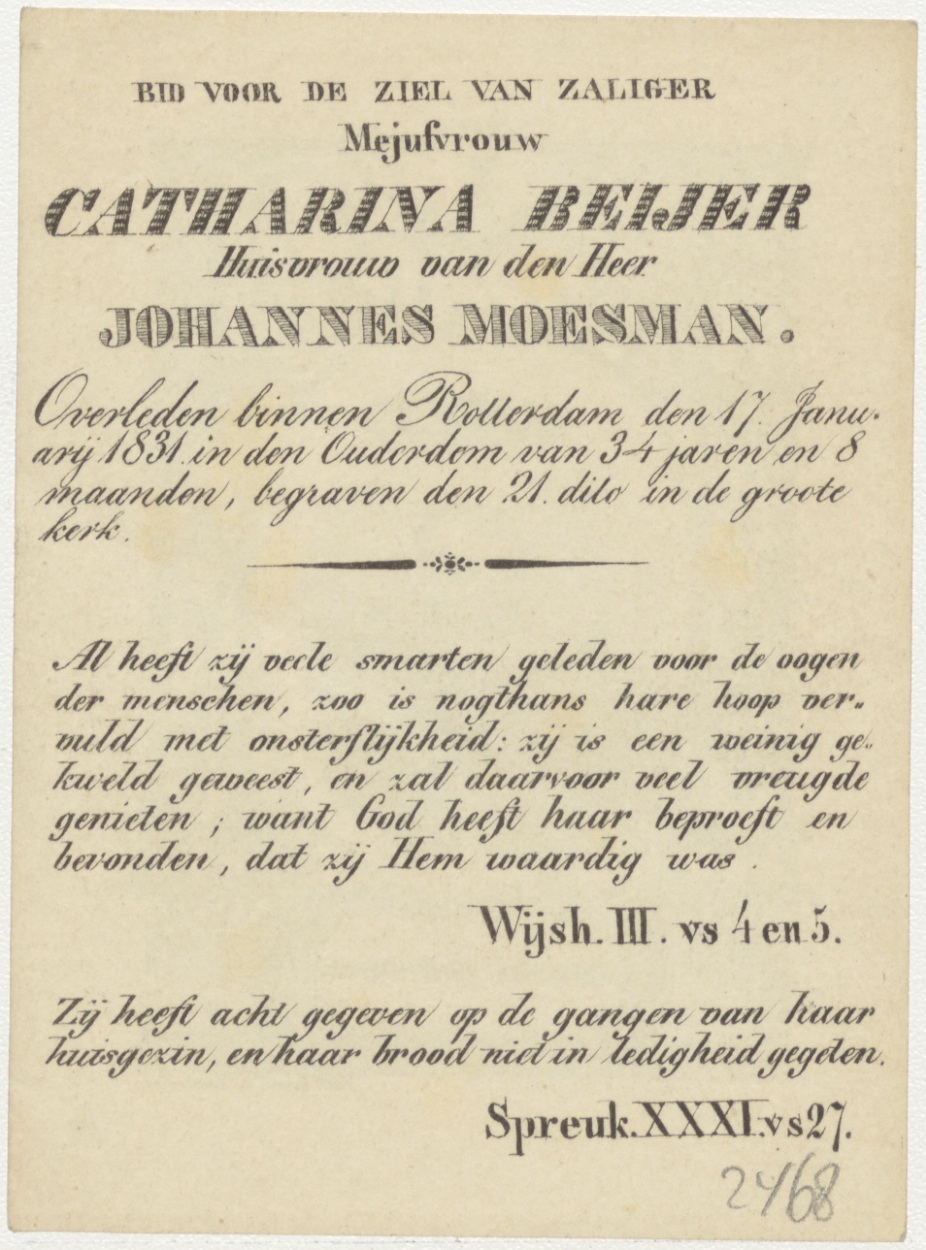 BID VOOR DE ZIEL VAN ZALIGER
Mejufvrouw
CATHARINA BEIJER
Huisvrouw van den Heer
JOHANNES MOESMAN.
Overleden binnen Rotterdam den 17. Janu-
arij 1831. in den Ouderdom van 34 jaren en 8
maanden, begraven den 21. dito in de groote
kerk.
Al heeft zij veele smarten geleden voor de oogen
der menschen, zoo is nogthans hare hoop ver-
vuld met onsterflijkheid: zij is een weinig ge-
kweld geweest, en zal daarvoor veel vreugde
genieten; want God heeft haar beproeft en
bevonden, dat zij Hem waardig was.
Wijsh. III. vs 4 en 5.
Zij heeft acht gegeven op de gangen van haar
huisgezin, en haar brood niet in ledigheid gegeten.
Spreuk. XXXI. vs 27.
2468